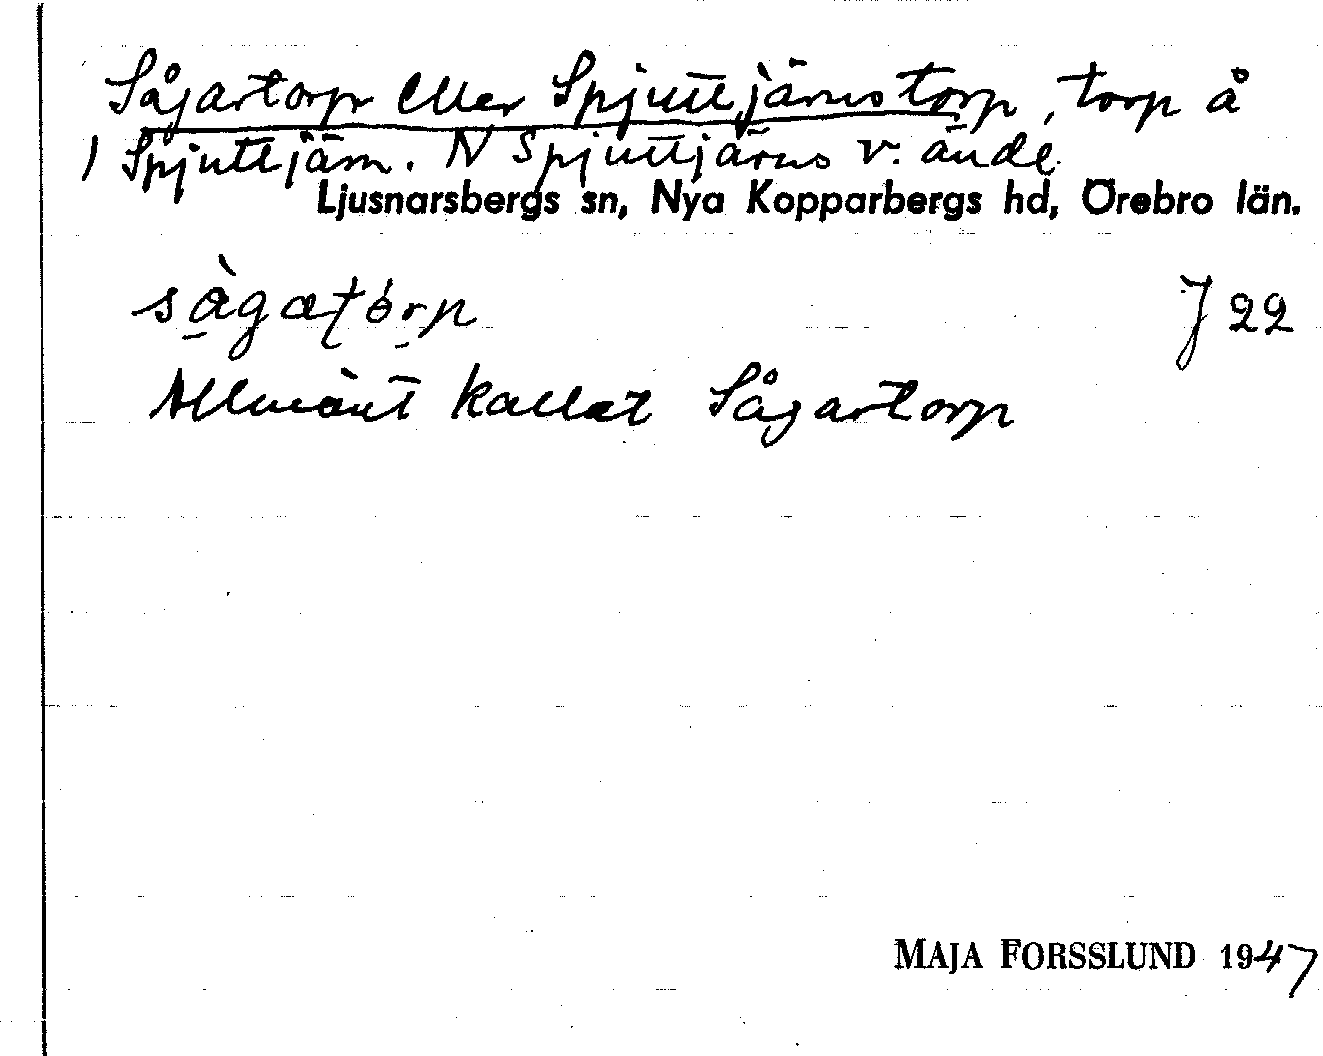 Sågartorp eller Spjuttjärnstorp, torp å
) Spjuttjärn. N Spjuttjärns v. ände
Ljusnarsbergs sn, Nya Kopparbergs hd, Örebro län.
J 22
Allmänt kallat Sågartorp
MAJA FORSSLUND 1947